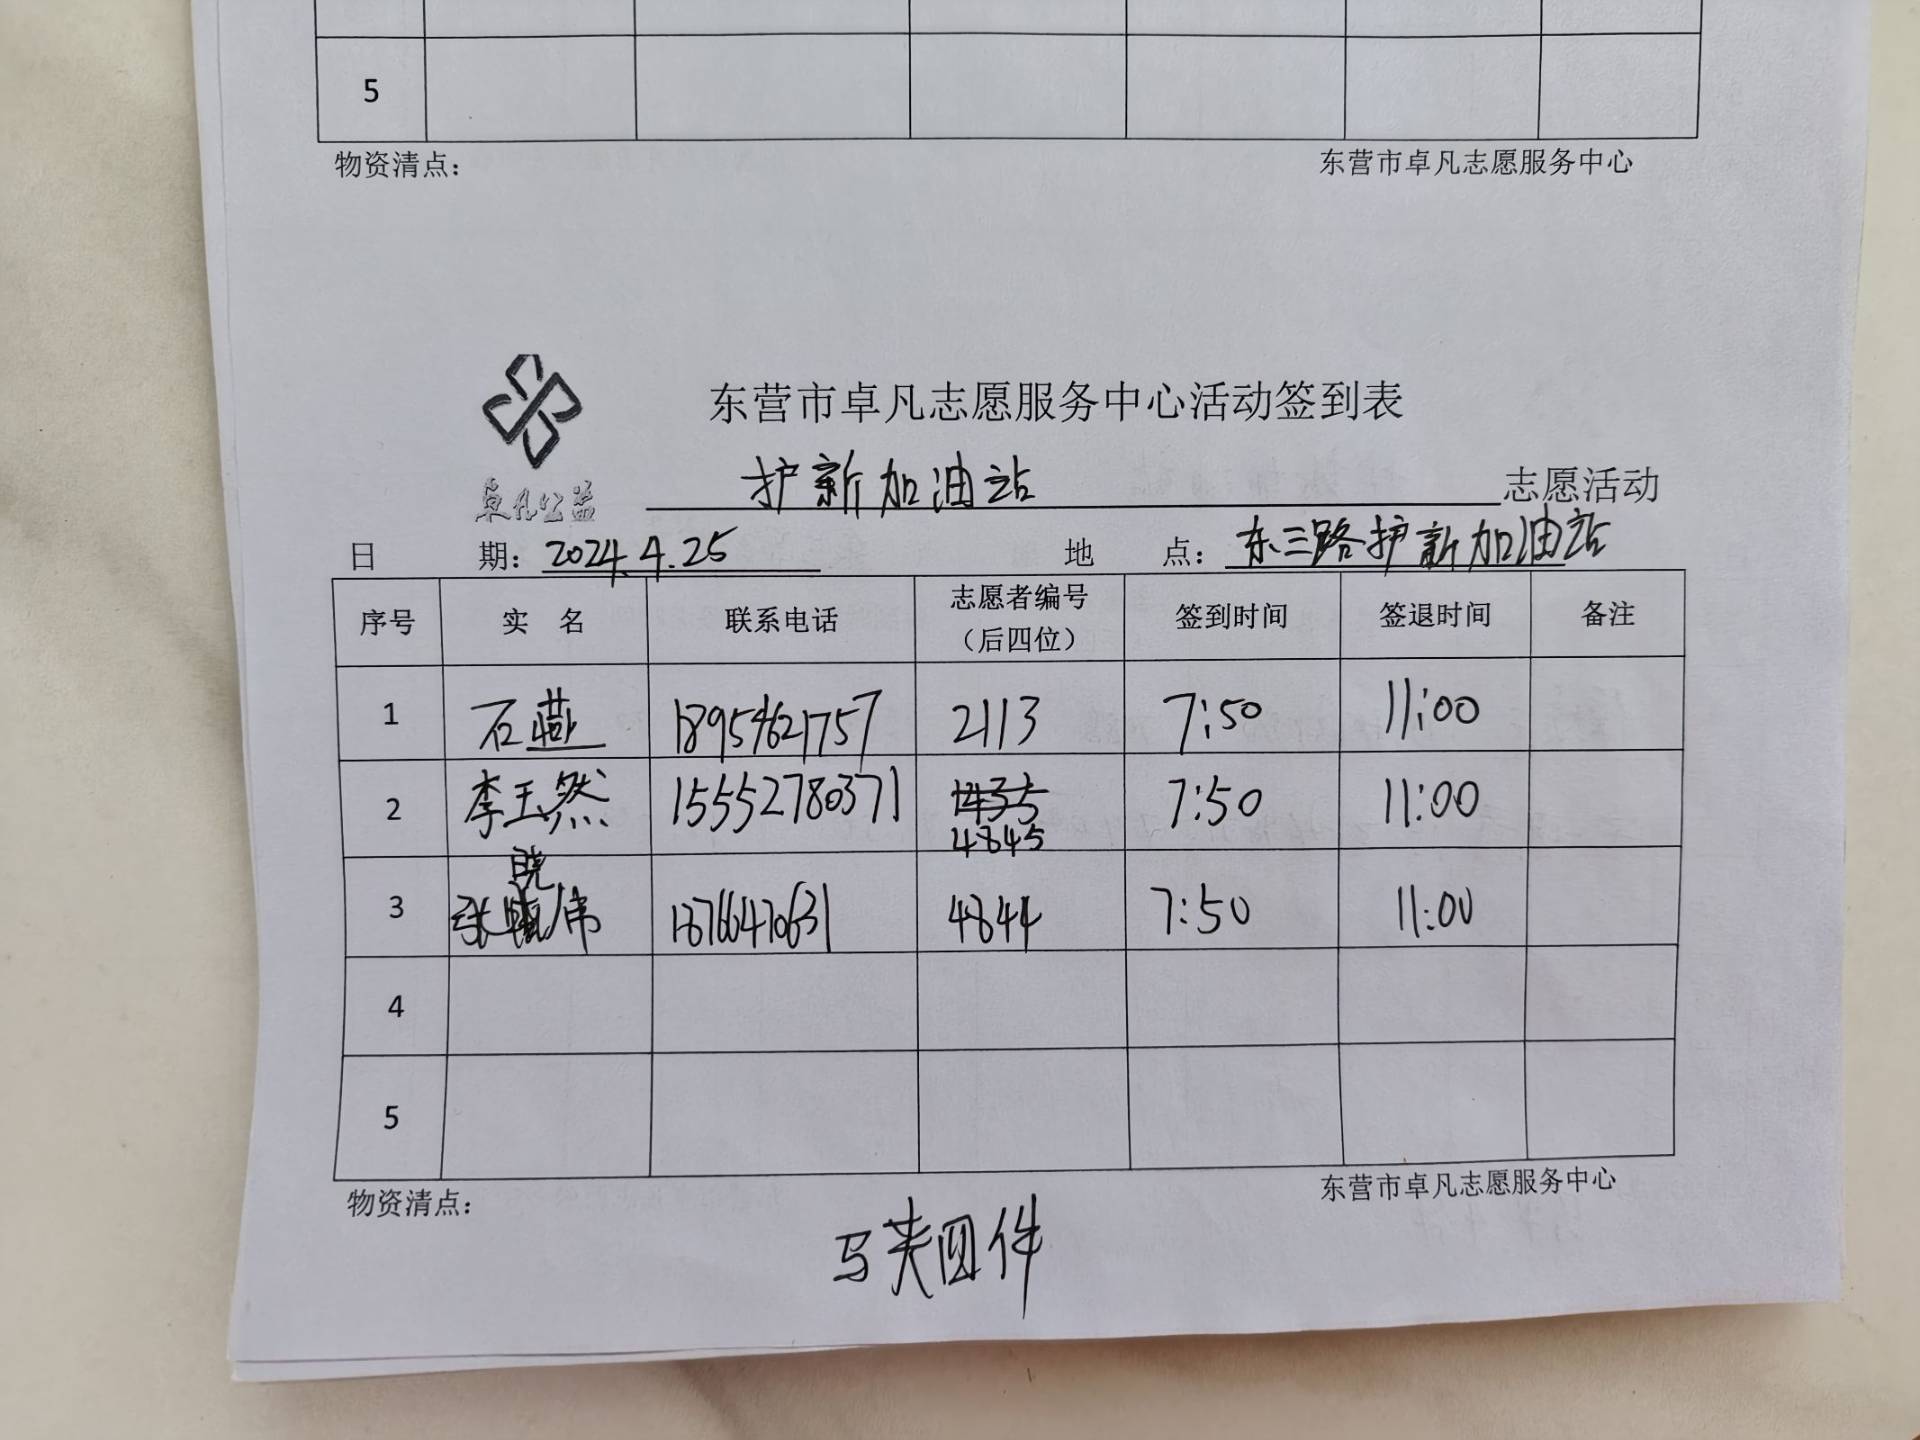 5
物资清点：	东营市卓凡志愿服务中心
东营市卓凡志愿服务中心活动签到表
卓凡公益
护新加油站 志愿活动
日 期：2024.4.25 地 点：东三路护新加油站
序号 实 名 联系电话 志愿者编号（后四位） 签到时间 签退时间 备注
1 石燕 18954621757 2113 7:50 11:00
2 李玉然 15552780371 1435 4845 7:50 11:00
3 张晓伟 13766470631 4844 7:50 11:00
4
5
物资清点： 东营市卓凡志愿服务中心
马夹四件